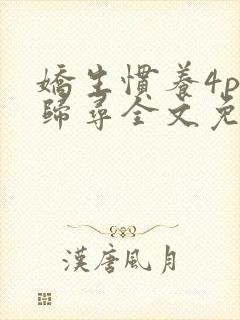 嬌生慣養4p
歸尋全文免
漢唐風月